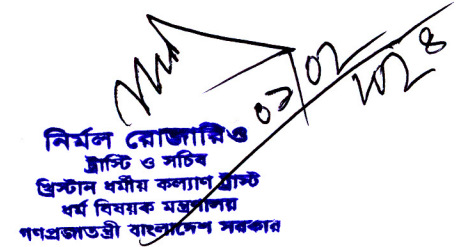 ০১/০২/২০২৪
নির্মল রোজারিও
ট্রাস্টি ও সচিব
খ্রিস্টান ধর্মীয় কল্যাণ ট্রাস্ট
ধর্ম বিষয়ক মন্ত্রণালয়
গণপ্রজাতন্ত্রী বাংলাদেশ সরকার